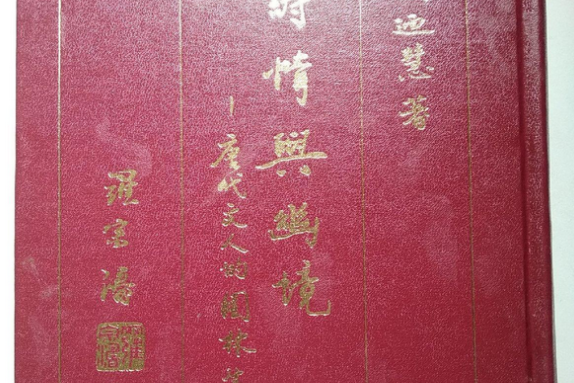 迺慧著
詩情與幽境
—唐代文人的園林生
羅宗濤